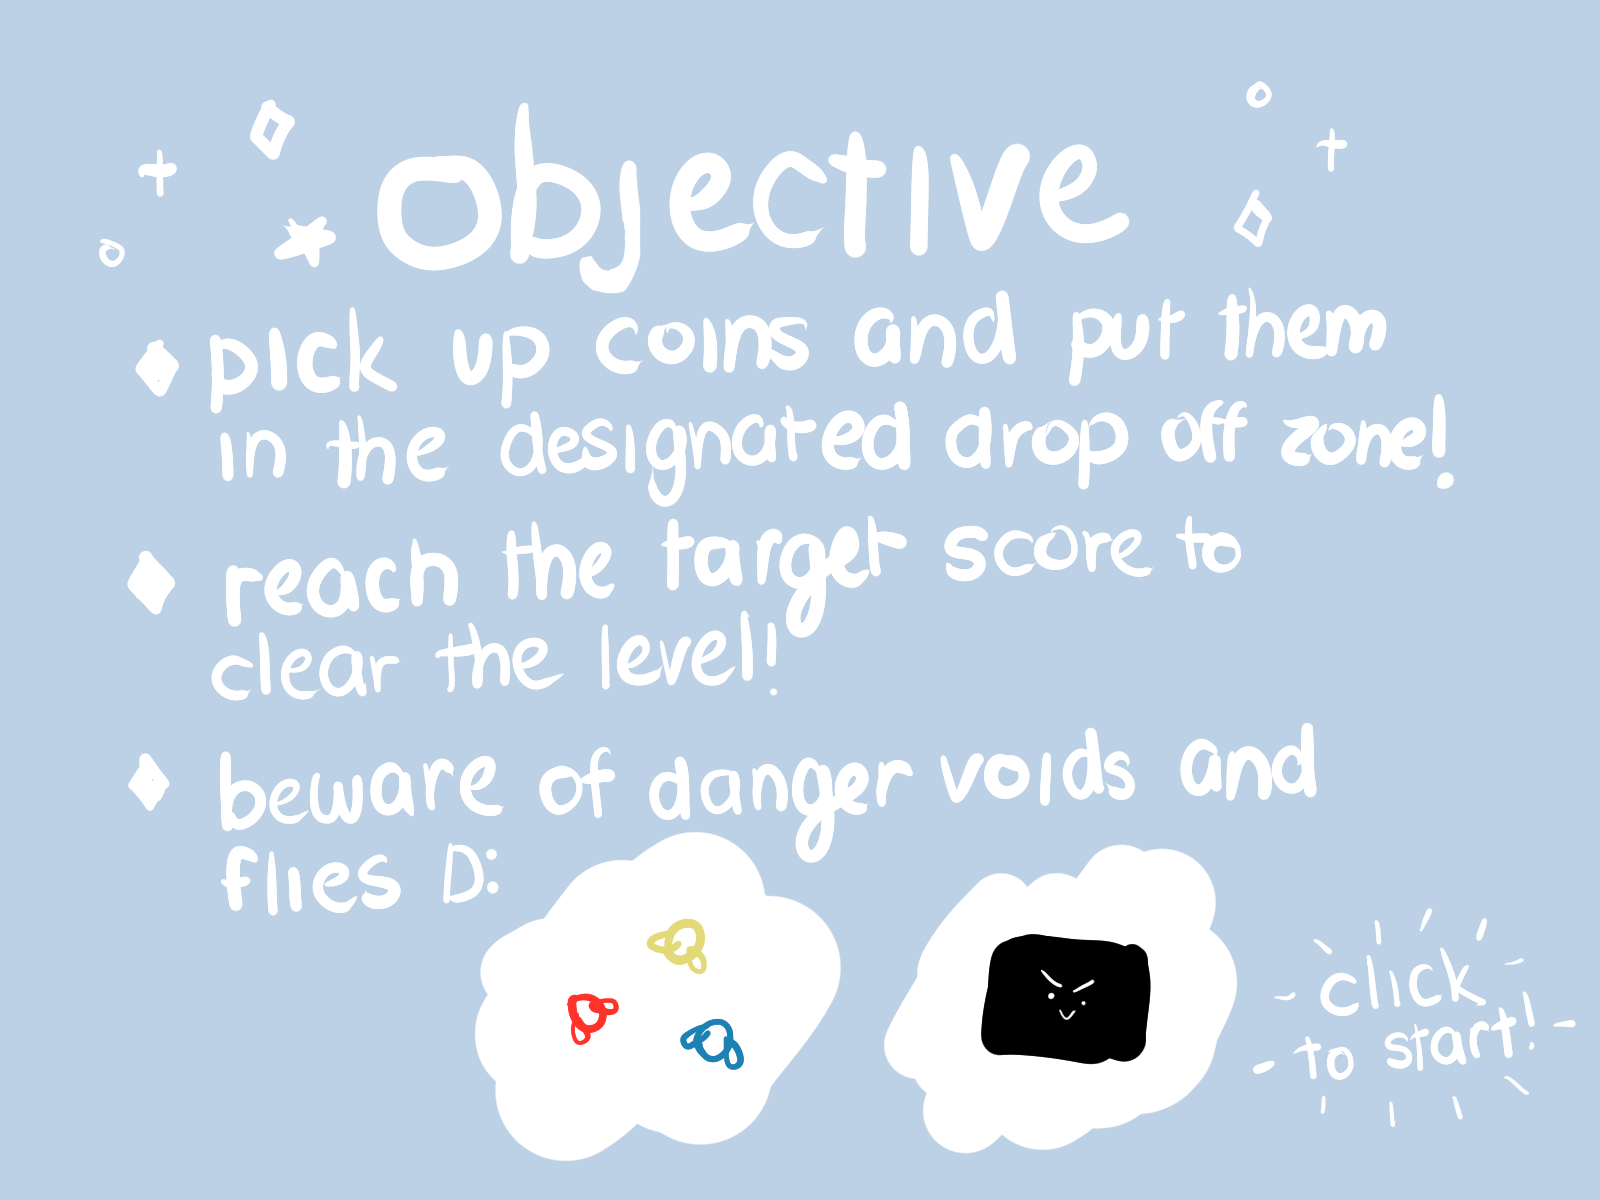 objective
pick up coins and put them
in the designated drop off zone!
reach the target score to
clear the level!
beware of danger voids and
flies D:
click
to start!